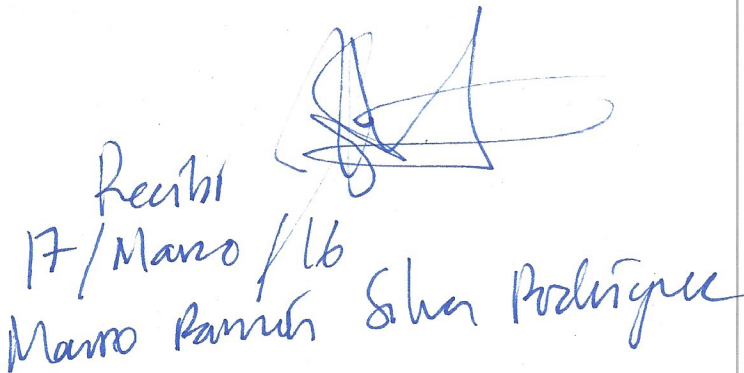 Recibí
17/Marzo/16
Mauro Ramón Silva Rodríguez